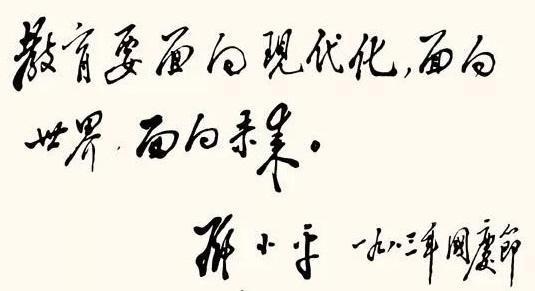 教育要面向现代化，面向
世界，面向未来。
邓小平 一九八三年國慶節